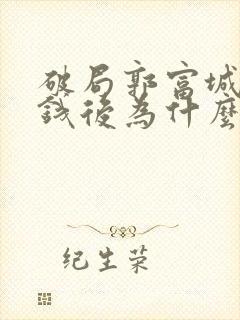 破局郭富城
錢後為什麼
纪生荣